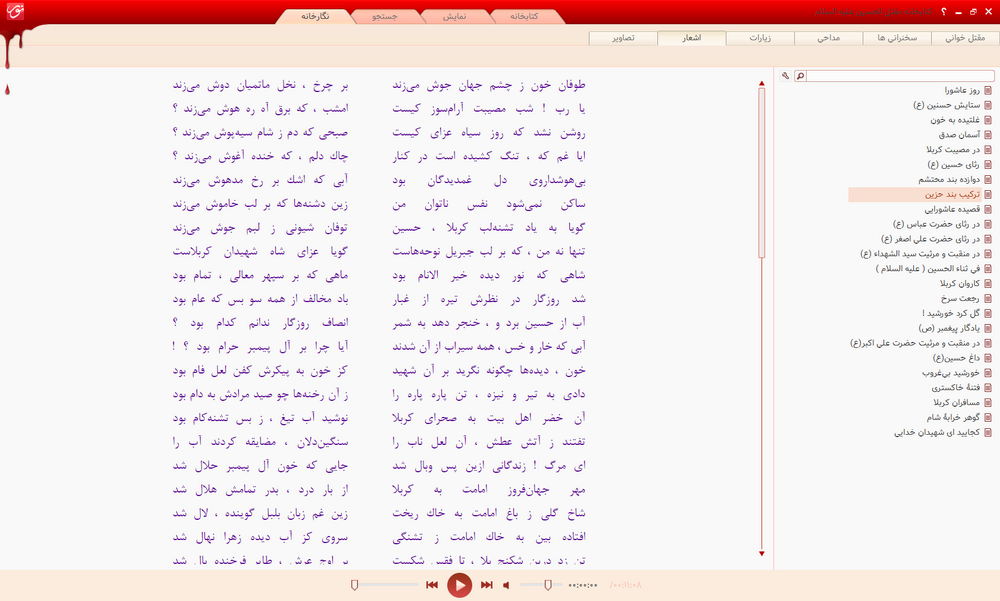 کتابخانه
نمایش
جستجو
نگارخانه
مقتل خوانی
سخنرانی ها
مداحی
زیارات
اشعار
تصاویر
روز عاشورا
ستایش حسنین (ع)
غلتیده به خون
آسمان صدق
در مصیبت کربلا
رثای حسین (ع)
دوازده بند محتشم
ترکیب بند حزین
قصیده عاشورایی
در رثای حضرت عباس (ع)
در رثای حضرت علی اصغر (ع)
در منقبت و مرثیت سید الشهداء (ع)
فی ثناء الحسین ( علیه السلام )
کاروان کربلا
رجعت سرخ
گل کرد خورشید !
یادگار پیغمبر (ص)
در منقبت و مرثیت حضرت علی اکبر(ع)
داغ حسین(ع)
خورشید بی‌غروب
فتنهٔ خاکستری
مسافران کربلا
گوهر خرابهٔ شام
کجایید ای شهیدان خدایی
طوفان خون ز چشم جهان جوش می‌زند بر چرخ ، نخل ماتمیان دوش می‌زند
یا رب ! شب مصیبت آرام‌سوز کیست امشب ، که برق آه ره هوش می‌زند ؟
روشن نشد که روز سیاه عزای کیست صبحی که دم ز شام سیه‌پوش می‌زند ؟
ایا غم که ، تنگ کشیده است در کنار چاك دلم ، که خنده آغوش می‌زند ؟
بی‌هوشداروی دل غمدیدگان بود آبی که اشك بر رخ مدهوش می‌زند
ساکن نمی‌شود نفس ناتوان من زین دشنه‌ها که بر لب خاموش می‌زند
گویا به یاد تشنه‌لب کربلا ، حسین توفان شیونی ز لبم جوش می‌زند
تنها نه من ، که بر لب جبریل نوحه‌هاست گویا عزای شاه شهیدان کربلاست
شاهی که نور دیده خیر الانام بود ماهی که بر سپهر معالی ، تمام بود
شد روزگار در نظرش تیره از غبار باد مخالف از همه سو بس که عام بود
آب از حسین برد و ، خنجر دهد به شمر انصاف روزگار ندانم کدام بود ؟
آبی که خار و خس ، همه سیراب از آن شدند آیا چرا بر آل پیمبر حرام بود ؟ !
خون ، دیده‌ها چگونه نگرید بر آن شهید کز خون به پیکرش کفن لعل فام بود
دادی به تیر و نیزه ، تن پاره پاره را ز آن رخنه‌ها چو صید مرادش به دام بود
آن خضر اهل بیت به صحرای کربلا نوشید آب تیغ ، ز بس تشنه‌کام بود
تفتند ز آتش عطش ، آن لعل ناب را سنگین‌دلان ، مضایقه کردند آب را
ای مرگ ! زندگانی ازین پس وبال شد جایی که خون آل پیمبر حلال شد
مهر جهان‌فروز امامت به کربلا از بار درد ، بدر تمامش هلال شد
شاخ گلی ز باغ امامت به خاك ریخت زین غم زبان بلبل گوینده ، لال شد
افتاده بین به خاك امامت ز تشنگی سروی کز آب دیده زهرا نهال شد
تن زد درین شکنج بلا ، تا قفس شکست بر اوج عرش ، طایر فرخنده بال شد
۰۰:۰۰:۰۰
/۰۰:۱۱:۰۸